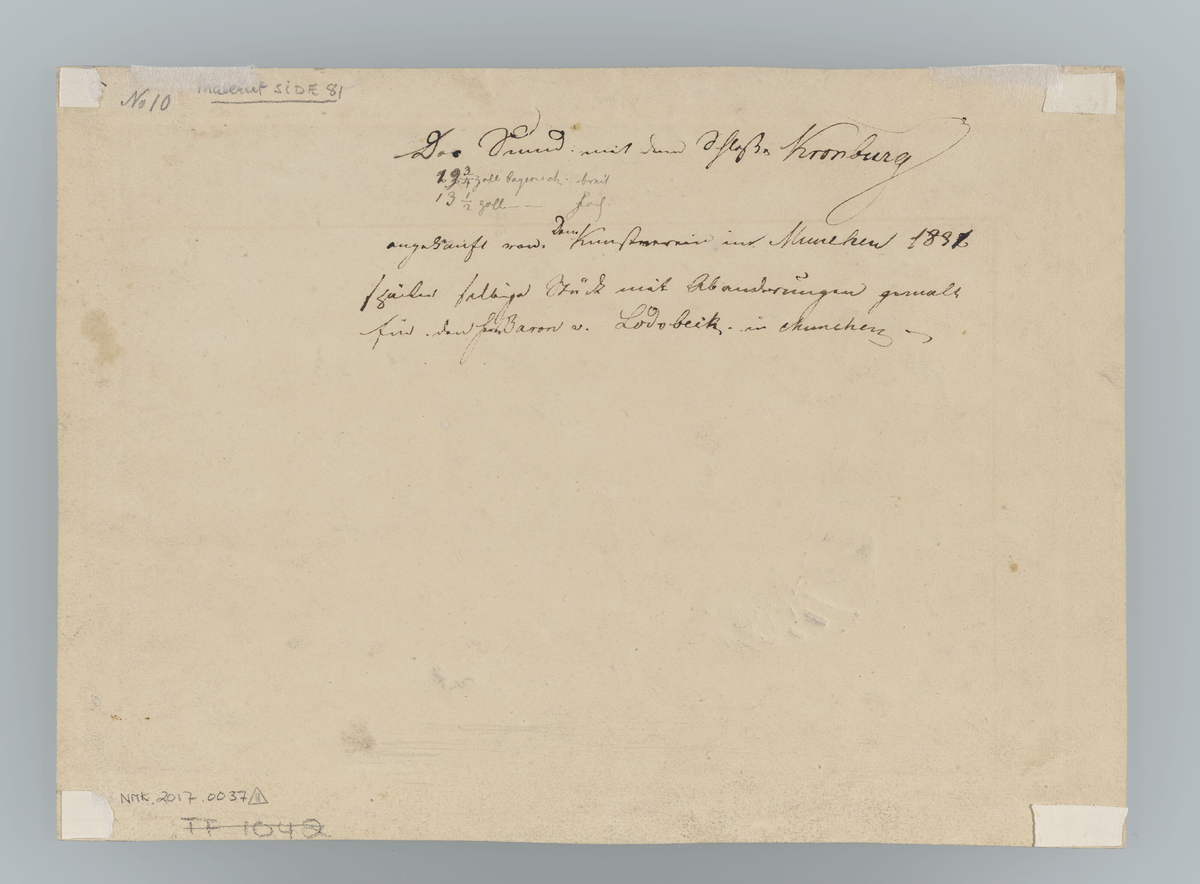 No 10
Malerut SIDE 81
Der Sund mit dem Schloße Kronburg
19 3/4 zoll bayerisch breit
13 1/2 zoll — hoch
angekauft von Dem Kunstverein in München 1831
später selbige Stück mit Abanderüngen gemalt
für den Baron v. Lodobeck in München
NMK.2017.0037
TF 1049